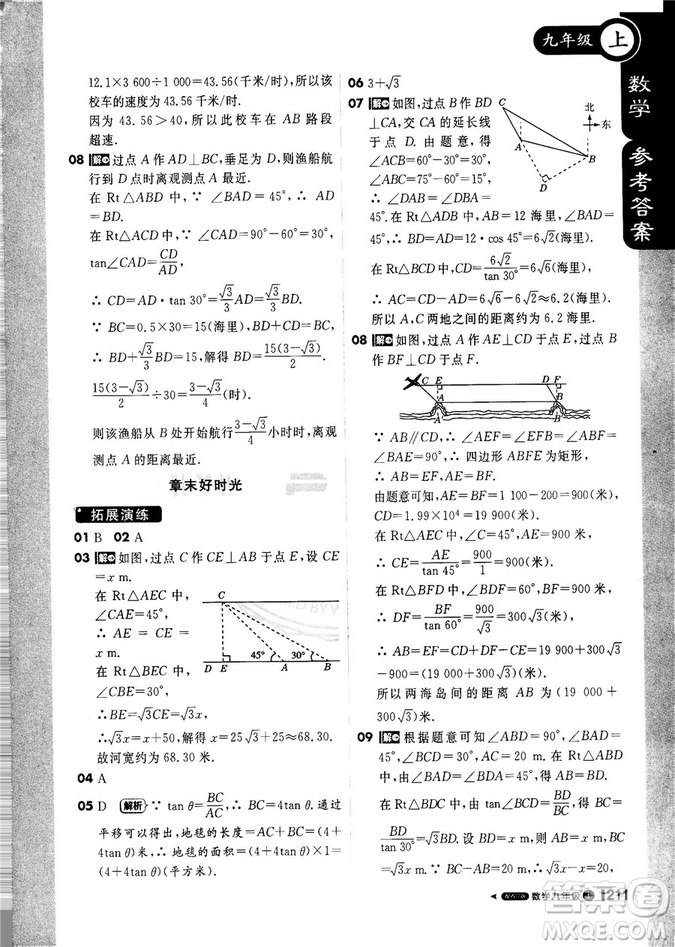 九年级 上
数学 参考答案
12.1×3 600÷1 000=43.56(千米/时),所以该
校车的速度为 43.56 千米/时.
因为 43.56>40,所以此校车在 AB 路段
超速.
08 解 过点 A 作 AD⊥BC,垂足为 D,则渔船航
行到 D 点时离观测点 A 最近.
在 Rt△ABD 中,∵∠B=45°,∴BD=AD.
在 Rt△ACD 中,∵∠CAD=90°-60°=30°,
tan∠CAD=CD/AD,
∴ CD=AD·tan 30°=√3/3 AD=√3/3 BD.
∵ BC=0.5×30=15(海里),BC=BD+CD,
∴ BD+√3/3 BD=15,解得 BD=15(3-√3)/2,
15(3-√3)/2÷30=(3-√3)/4(时).
则该渔船从 B 处开始航行(3-√3)/4小时时,离观
测点 A 的距离最近.
章末好时光
拓展演练
01 B 02 A
03 解 如图,过点 C 作 CE⊥AB 于点 E,设 CE
=x m.
在 Rt△AEC 中,
∠CAE=45°,
∴ AE = CE =
x m.
在 Rt△BEC 中,
∠CBE=30°,
C
45° 30°
D E A B
∴BE=√3CE=√3x m.
∴√3x=x+50,解得 x=25√3+25≈68.30.
故河宽约为 68.30 m.
04 A
05 D 解析 ∵ tan θ=BC/AC,∴ BC=4tan θ.通过
平移可以得到,地毯的长度=AC+BC=(4+
4tan θ)米,∴ 地毯的面积=(4+4tan θ)×1=
(4+4tan θ)(平方米).
06 3+√3
07 解 如图,过点 B 作 BD
⊥CA,交 CA 的延长线
于点 D.由题意,得
∠ACB=60°-30°=30°,
∠ABC=75°-60°=15°,
∴ ∠DAB=∠DBA=
C
北
东
A
B
D
45°.在 Rt△ADB 中,AB=12 海里,
∴ BD=AD=12·cos 45°=6√2(海里).
在 Rt△BCD 中,CD=6√2/tan 30°=6√6(海里),
∴ AC=CD-AD=6√6-6√2≈6.2(海里).
所以 A,C 两地之间的距离约为 6.2 海里.
08 解 如图,过点 A 作 AE⊥CD 于点 E,过点 B
作 BF⊥CD 于点 F.
C E D F
A B
∵ AB∥CD,∴ ∠AEF=∠EFB=∠ABF
=90°.∴ 四边形 ABFE 为矩形.
∴ AB=EF,AE=BF.
由题意可知,AE=BF=1100-200=900(米),
CD=1.99×10⁴=19 900(米).
∴在 Rt△AEC 中,∠C=45°,AE=900 米,
∴ CE=AE/tan 45°=900/1=900(米).
在 Rt△BFD 中,∠BDF=60°,BF=900 米,
∴ DF=BF/tan 60°=900/√3=300√3(米).
∴ AB=EF=CD+DF-CE=19 900+300√3
-900=19 000+300√3(米).
所以两海岛间的距离 AB 为(19 000+
300√3)米.
09 解 根据题意可知∠ABD=90°,∠BAD=45°,
∠BCD=30°,AC=20 m.
在 Rt△ABD 中,由∠BAD=∠BDA=45°,得
AB=BD.在 Rt△BDC 中,由 tan∠BCD=BD/BC,得 BC=
BD/tan 30°=√3BD.设 BD=x m,则 AB=x m,BC
=√3x m.∵BC-AB=AC,∴√3x-x=20,
数学九年级 上 121
答案圈